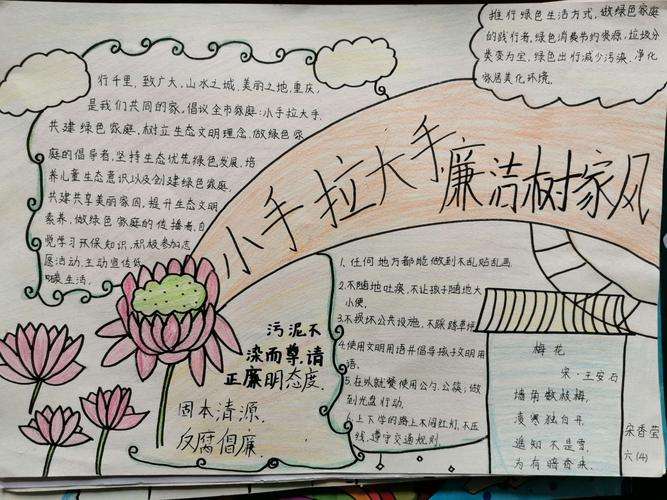 小手拉大手 廉洁树家风
推行绿色生活方式,做绿色家庭
的践行者,绿色消费节约资源,垃圾分
类变为宝,绿色出行减少污染,净化
家居美化环境.
行千里,致广大,山水之城,美丽之地,重庆,
是我们共同的家,倡议全市家庭:小手拉大手
共建绿色家庭,树立生态文明理念,做绿色家
庭的倡导者,坚持生态优先绿色发展,培
养儿童生态意识以及创建绿色家庭,
共建共享美丽家园,提升生态文明
素养,做绿色家庭的传播者,自
觉学习环保知识,积极参加志
愿活动,主动宣传低
碳生活.
污泥不
染而尊,请
正廉明态度.
固本清源,
反腐倡廉.
1.任何地方都能做到不乱贴乱画
2.不随地吐痰,不让孩子随地大
小便.
3.不损坏公共设施,不踩踏草坪
4.使用文明用语并倡导孩子文明用
语.
5.在外就餐使用公勺.公筷;做
到光盘行动.
6.上下学的路上不闯红灯,不压
线,遵守交通规则.
梅花
宋·王安石
墙角数枝梅,
凌寒独自开,
遥知不是雪,
为有暗香来.
宋香莹
六(4)